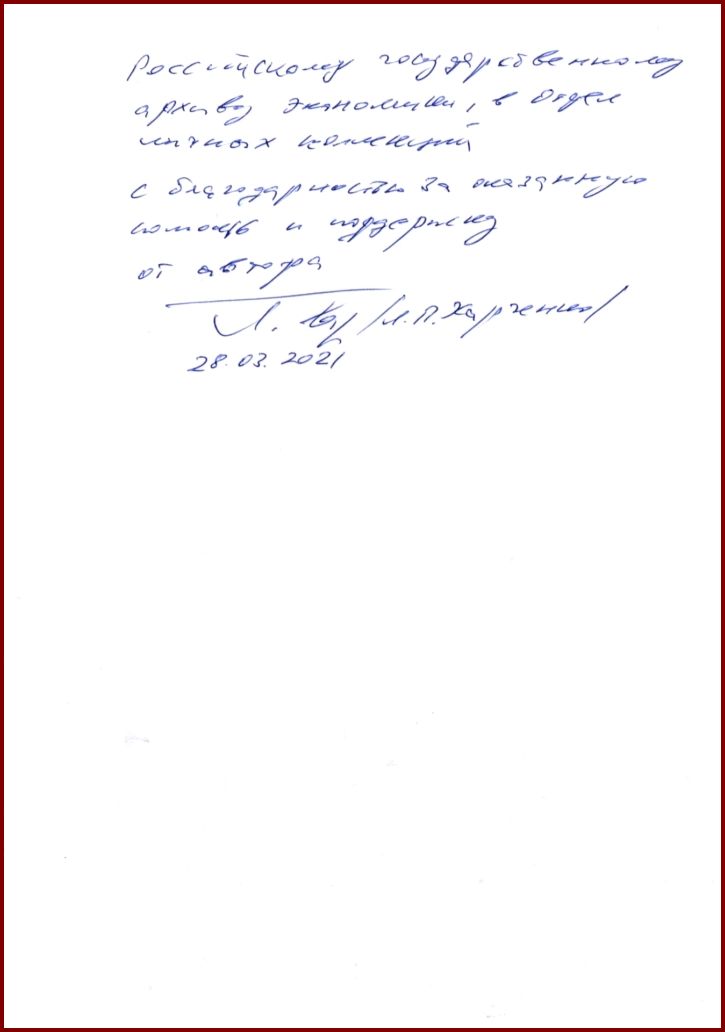 Российскому государственному
архиву экономики, в отдел
личных коллекций
с благодарностью за оказанную
помощь и поддержку
от автора
Л. Хар /Л.П. Харченко/
28.03.2021